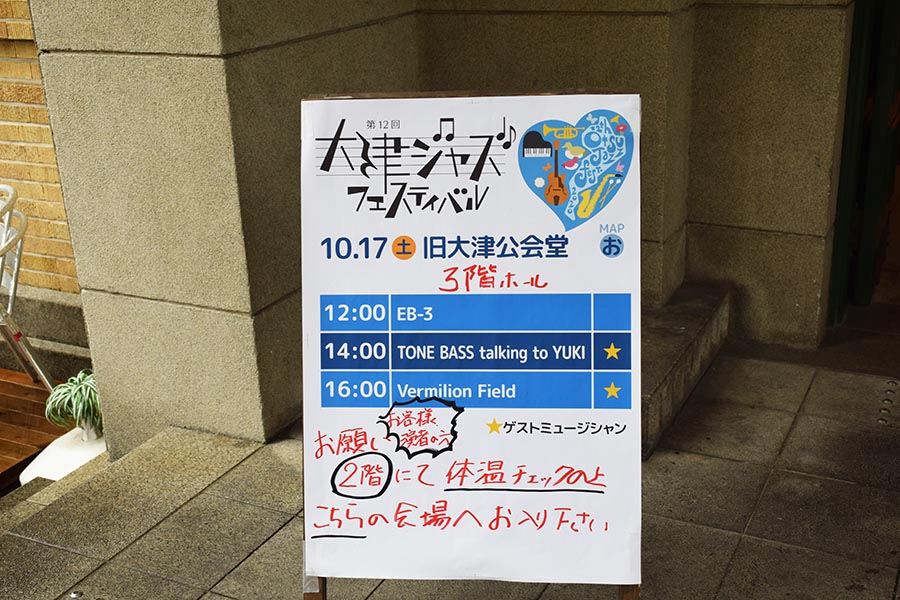 第12回
大津ジャズ
フェスティバル
10.17 土 旧大津公会堂
MAP
お
3階ホール
12:00 EB-3
14:00 TONE BASS talking to YUKI ★
16:00 Vermilion Field ★
★ゲストミュージシャン
お客様
演者の方
お願い
2階にて体温チェックの上
こちらの会場へお入り下さい